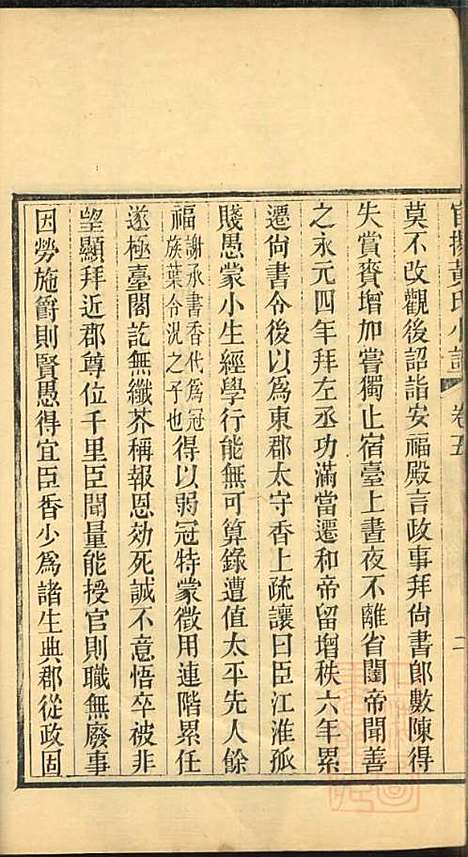 黃氏 卷五
二
莫不改觀後詔詣安福殿言政事拜尙書郞數陳得
失賞賚增加嘗獨止宿臺上晝夜不離省闥帝聞善
之永元四年拜左丞功滿當遷和帝留增秩六年累
遷尙書令後以爲東郡太守香上疏讓曰臣江淮孤
賤愚蒙小生經學行能無可算錄遭值太平先人餘
福謝承書香代爲冠族葉令況之子也得以弱冠特蒙徵用連階累任
遂極臺閣訖無纖芥稱報恩効死誠不意悟卒被非
望顯拜近郡尊位千里臣聞量能授官則職無廢事
因勞施爵則賢愚得宜臣香少爲諸生典郡從政固